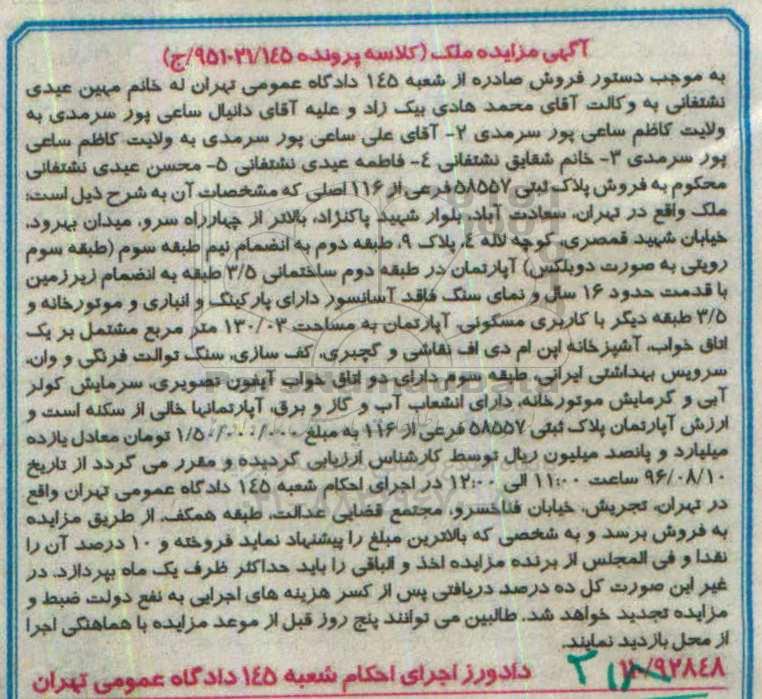 آگهی مزایده ملک (کلاسه پرونده ۹۵۱۰۲۱/۱٤۵/ج)
به موجب دستور فروش صادره از شعبه ۱٤۵ دادگاه عمومی تهران له خانم مهین عیدی
نشتفانی به وکالت آقای محمد هادی بیک زاد و علیه آقای دانیال ساعی پور سرمدی به
ولایت کاظم ساعی پور سرمدی ۲- آقای علی ساعی پور سرمدی به ولایت کاظم ساعی
پور سرمدی ۳- خانم شقایق نشتفانی ٤- فاطمه عیدی نشتفانی ۵- محسن عیدی نشتفانی
محکوم به فروش پلاک ثبتی ۵۸۵۵۷ فرعی از ۱۱۶ اصلی که مشخصات آن به شرح ذیل است:
ملک واقع در تهران، سعادت آباد، بلوار شهید پاکنژاد، بالاتر از چهارراه سرو، میدان بهرود،
خیابان شهید قمصری، کوچه لاله ٤، پلاک ۹، طبقه دوم به انضمام نیم طبقه سوم (طبقه سوم
رویتی به صورت دوبلکس) آپارتمان در طبقه دوم ساختمانی ۳/۵ طبقه به انضمام زیرزمین
با قدمت حدود ۱۶ سال و نمای سنگ فاقد آسانسور دارای پارکینگ و انباری و موتورخانه و
۳/۵ طبقه دیگر با کاربری مسکونی. آپارتمان به مساحت ۱۳۰/۰۳ متر مربع مشتمل بر یک
اتاق خواب، آشپزخانه اپن ام دی اف نقاشی و گچبری، کف سازی، سنگ توالت فرنگی و وان،
سرویس بهداشتی ایرانی، طبقه سوم دارای دو اتاق خواب آیفون تصویری، سرمایش کولر
آبی و گرمایش موتورخانه، دارای انشعاب آب و گاز و برق، آپارتمانها خالی از سکنه است و
ارزش آپارتمان پلاک ثبتی ۵۸۵۵۷ فرعی از ۱۱۶ به مبلغ ۱/۱۵۰/۰۰۰/۰۰۰ تومان معادل یازده
میلیارد و پانصد میلیون ریال توسط کارشناس ارزیابی گردیده و مقرر می گردد از تاریخ
۹۶/۰۸/۱۰ ساعت ۱۱:۰۰ الی ۱۲:۰۰ در اجرای احکام شعبه ۱٤۵ دادگاه عمومی تهران واقع
در تهران، تجریش، خیابان فناخسرو، مجتمع قضایی عدالت، طبقه همکف، از طریق مزایده
به فروش برسد و به شخصی که بالاترین مبلغ را پیشنهاد نماید فروخته و ۱۰ درصد آن را
نقدا و فی المجلس از برنده مزایده اخذ و الباقی را باید حداکثر ظرف یک ماه بپردازد. در
غیر این صورت کل ده درصد دریافتی پس از کسر هزینه های اجرایی به نفع دولت ضبط و
مزایده تجدید خواهد شد. طالبین می توانند پنج روز قبل از موعد مزایده با هماهنگی اجرا
از محل بازدید نمایند.
دادورز اجرای احکام شعبه ۱٤۵ دادگاه عمومی تهران